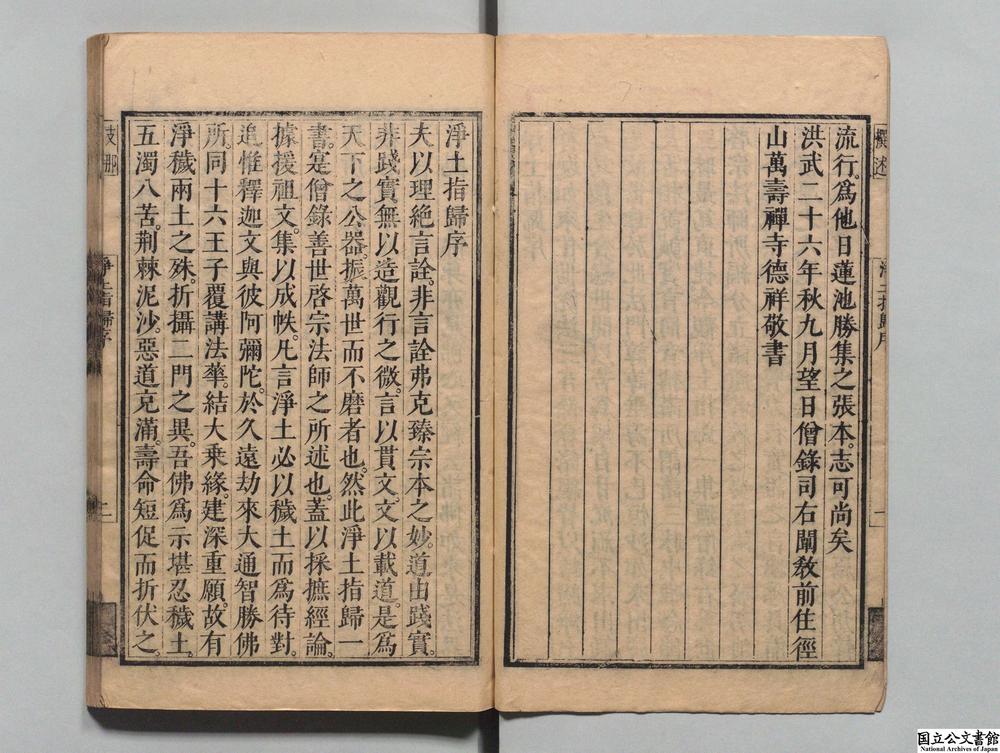 流行。爲他日蓮池勝集之張本。志可尚矣
洪武二十六年秋九月望日僧錄司右闡教前住徑
山萬壽禪寺德祥敬書
淨土指歸序
夫以理絶言詮。非言詮弗克臻宗本之妙。道由踐實。
非踐實無以造觀行之微。言以貫文。文以載道。是爲
天下之公器。振萬世而不磨者也。然此淨土指歸一
書。寔僧錄善世啓宗法師之所述也。蓋以採摭經論。
據援祖文。集以成帙。凡言淨土必以穢土而爲待對。
追惟釋迦文與彼阿彌陀。於久遠劫來大通智勝佛
所。同十六王子覆講法華。結大乘緣。建深重願。故有
淨穢兩土之殊。折攝二門之異。吾佛爲示堪忍穢土。
五濁八苦。荆棘泥沙。惡道充滿。壽命短促而折伏之。
撰述
淨土指歸序
一
支那
淨土指歸序
上
国立公文書館
National Archives of Japan